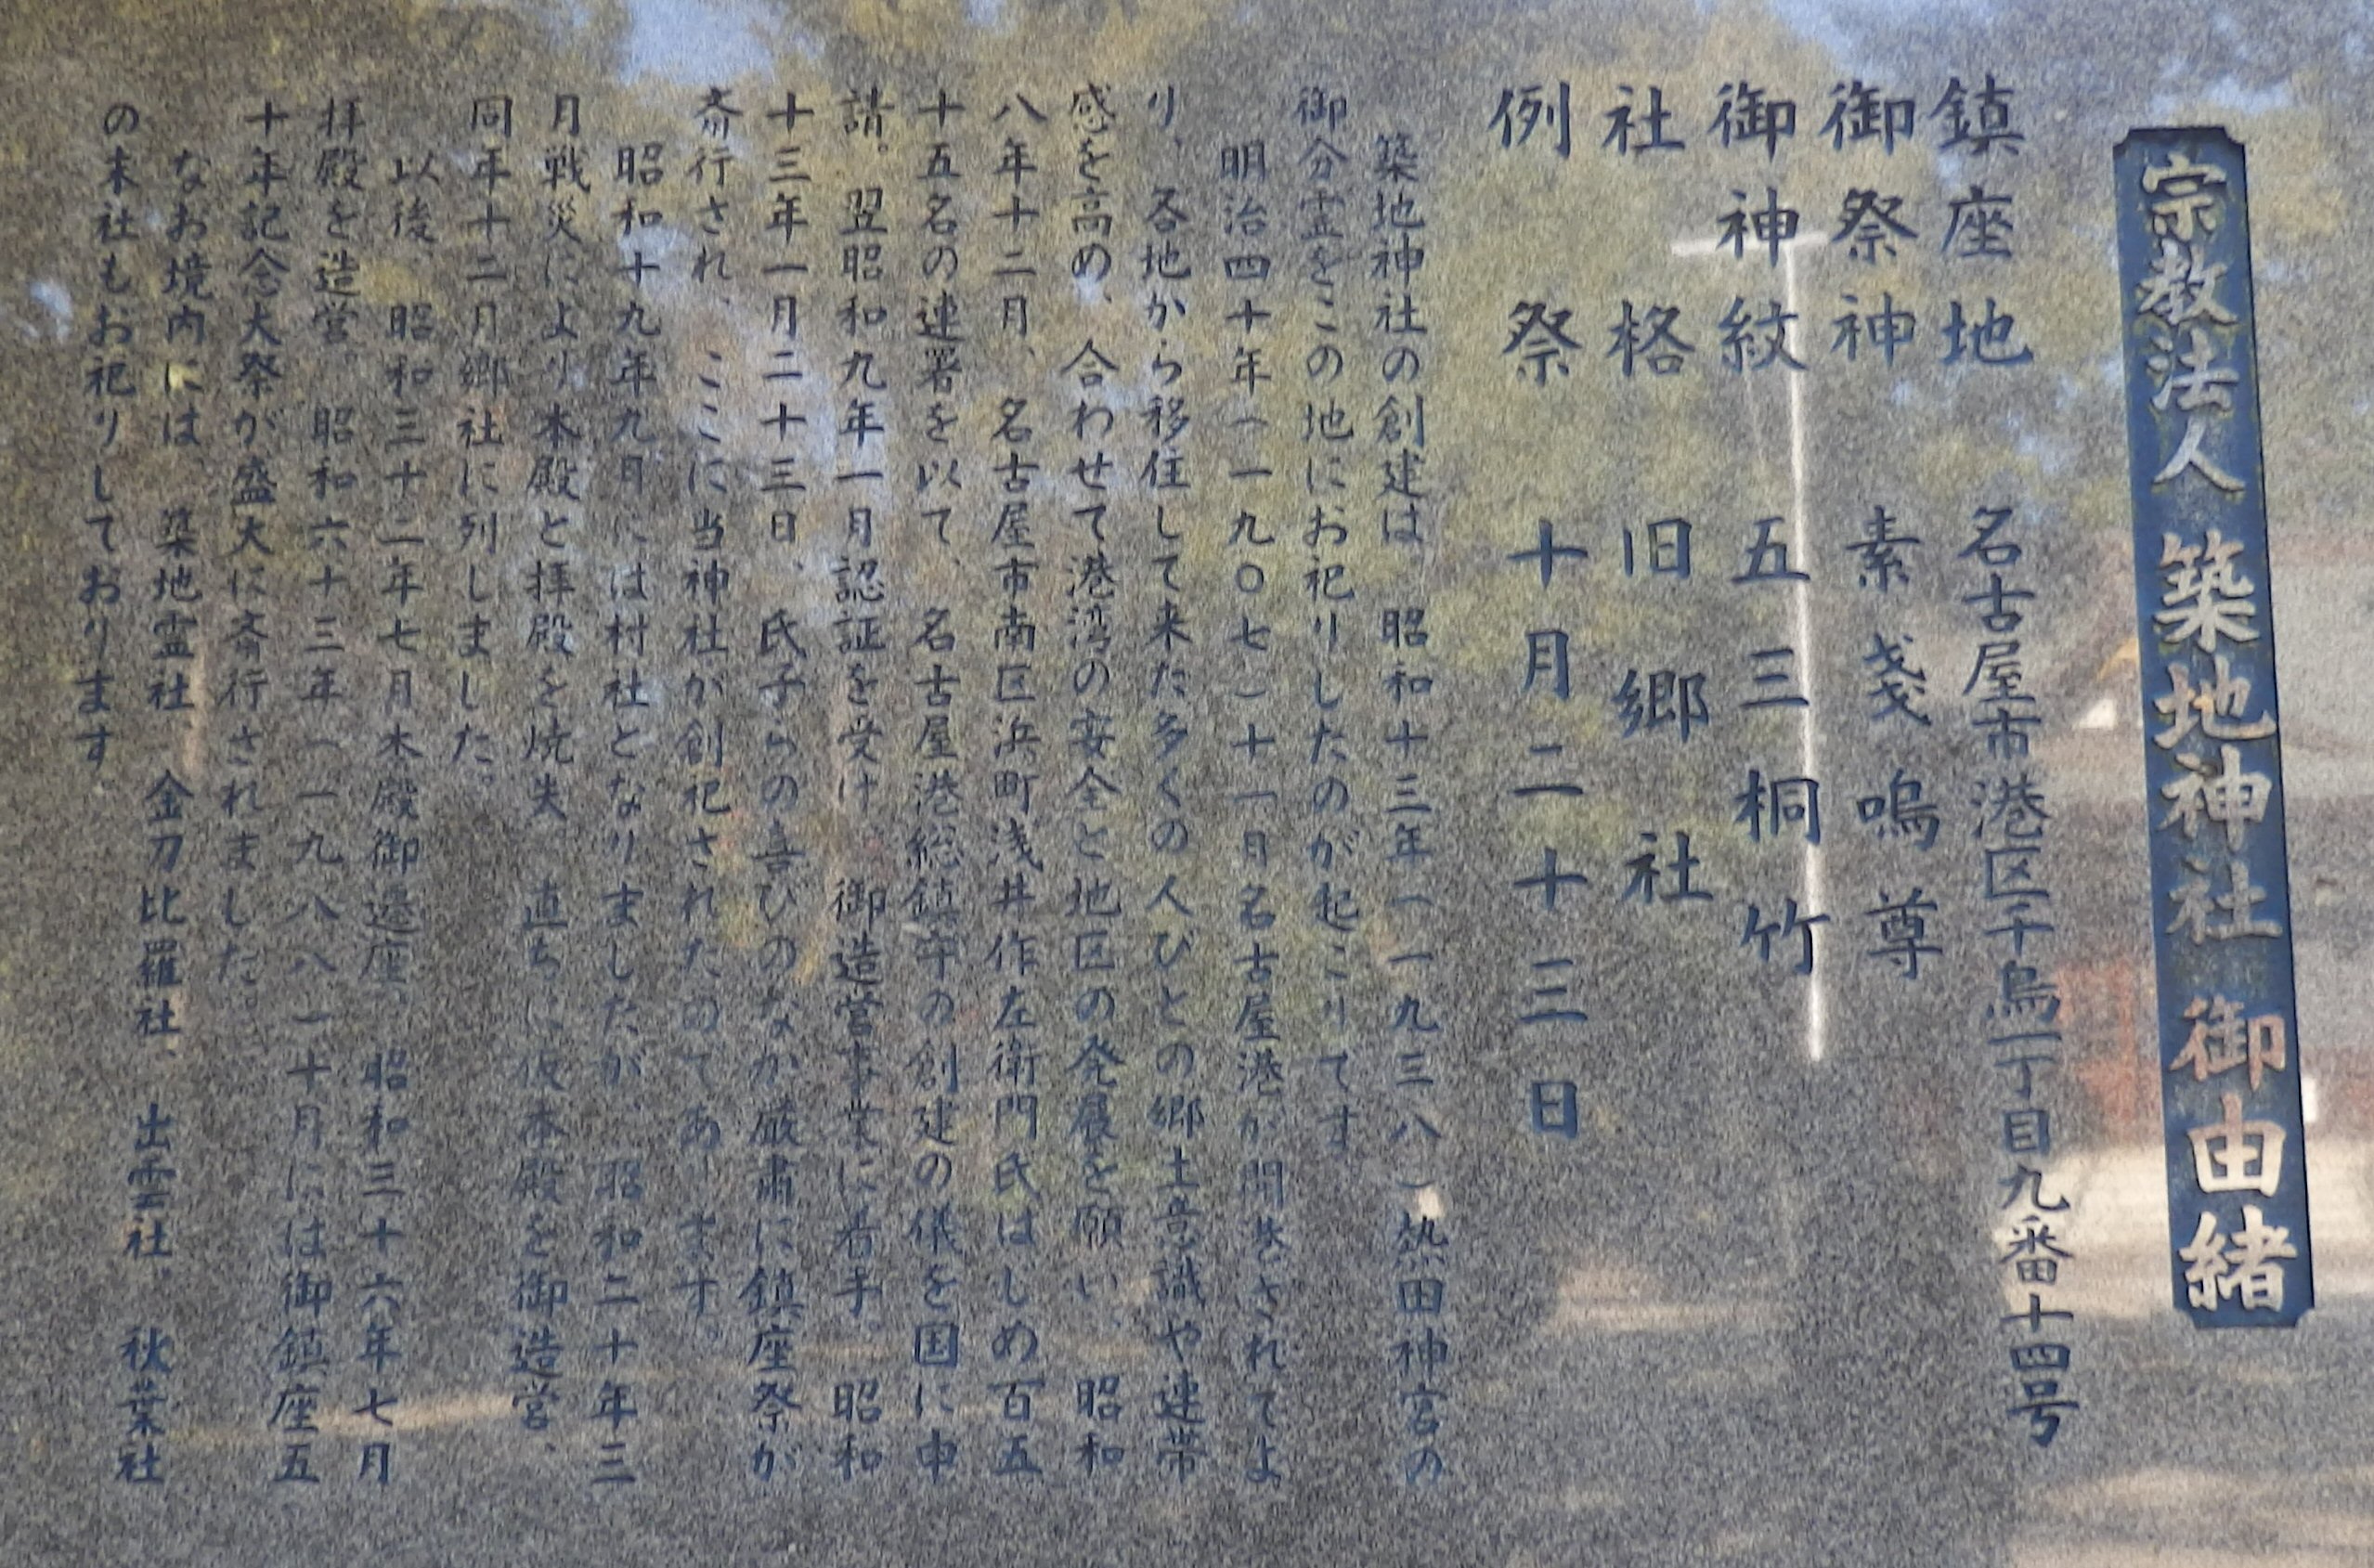 宗教法人 築地神社 御由緒
鎮座地 名古屋市港区千鳥一丁目九番十四号
御祭神 素戔嗚尊
御神紋 五三桐竹
社格 旧郷社
例祭 十月二十三日
築地神社の創建は、昭和十三年(一九三八)熱田神宮の
御分霊をこの地にお祀りしたのが起こりです
明治四十年(一九〇七)十一月名古屋港が開港されてよ
り、各地から移住して来た多くの人びとの郷土意識や連帯
感を高め、合わせて港湾の安全と地区の発展を願い、昭和
八年十二月、名古屋市南区浜町浅井作左衛門氏はしめ百五
十五名の連署を以て、名古屋港総鎮守の創建の儀を国に申
請。翌昭和九年一月認証を受け、御造営事業に着手。昭和
十三年一月二十三日、氏子らの喜びのなか厳粛に鎮座祭が
斎行され、ここに当神社が創祀されたのであります。
昭和十九年九月には村社となりましたが、昭和二十年三
月戦災により本殿と拝殿を焼失、直ちに仮本殿を御造営、
同年十二月郷社に列しました。
以後、昭和三十二年七月本殿御遷座、昭和三十六年七月
拝殿を造営。昭和六十三年(一九八八)十月には御鎮座五
十年記念大祭が盛大に斎行されました。
なお境内には、築地霊社、金刀比羅社、出雲社、秋葉社
の末社もお祀りしております